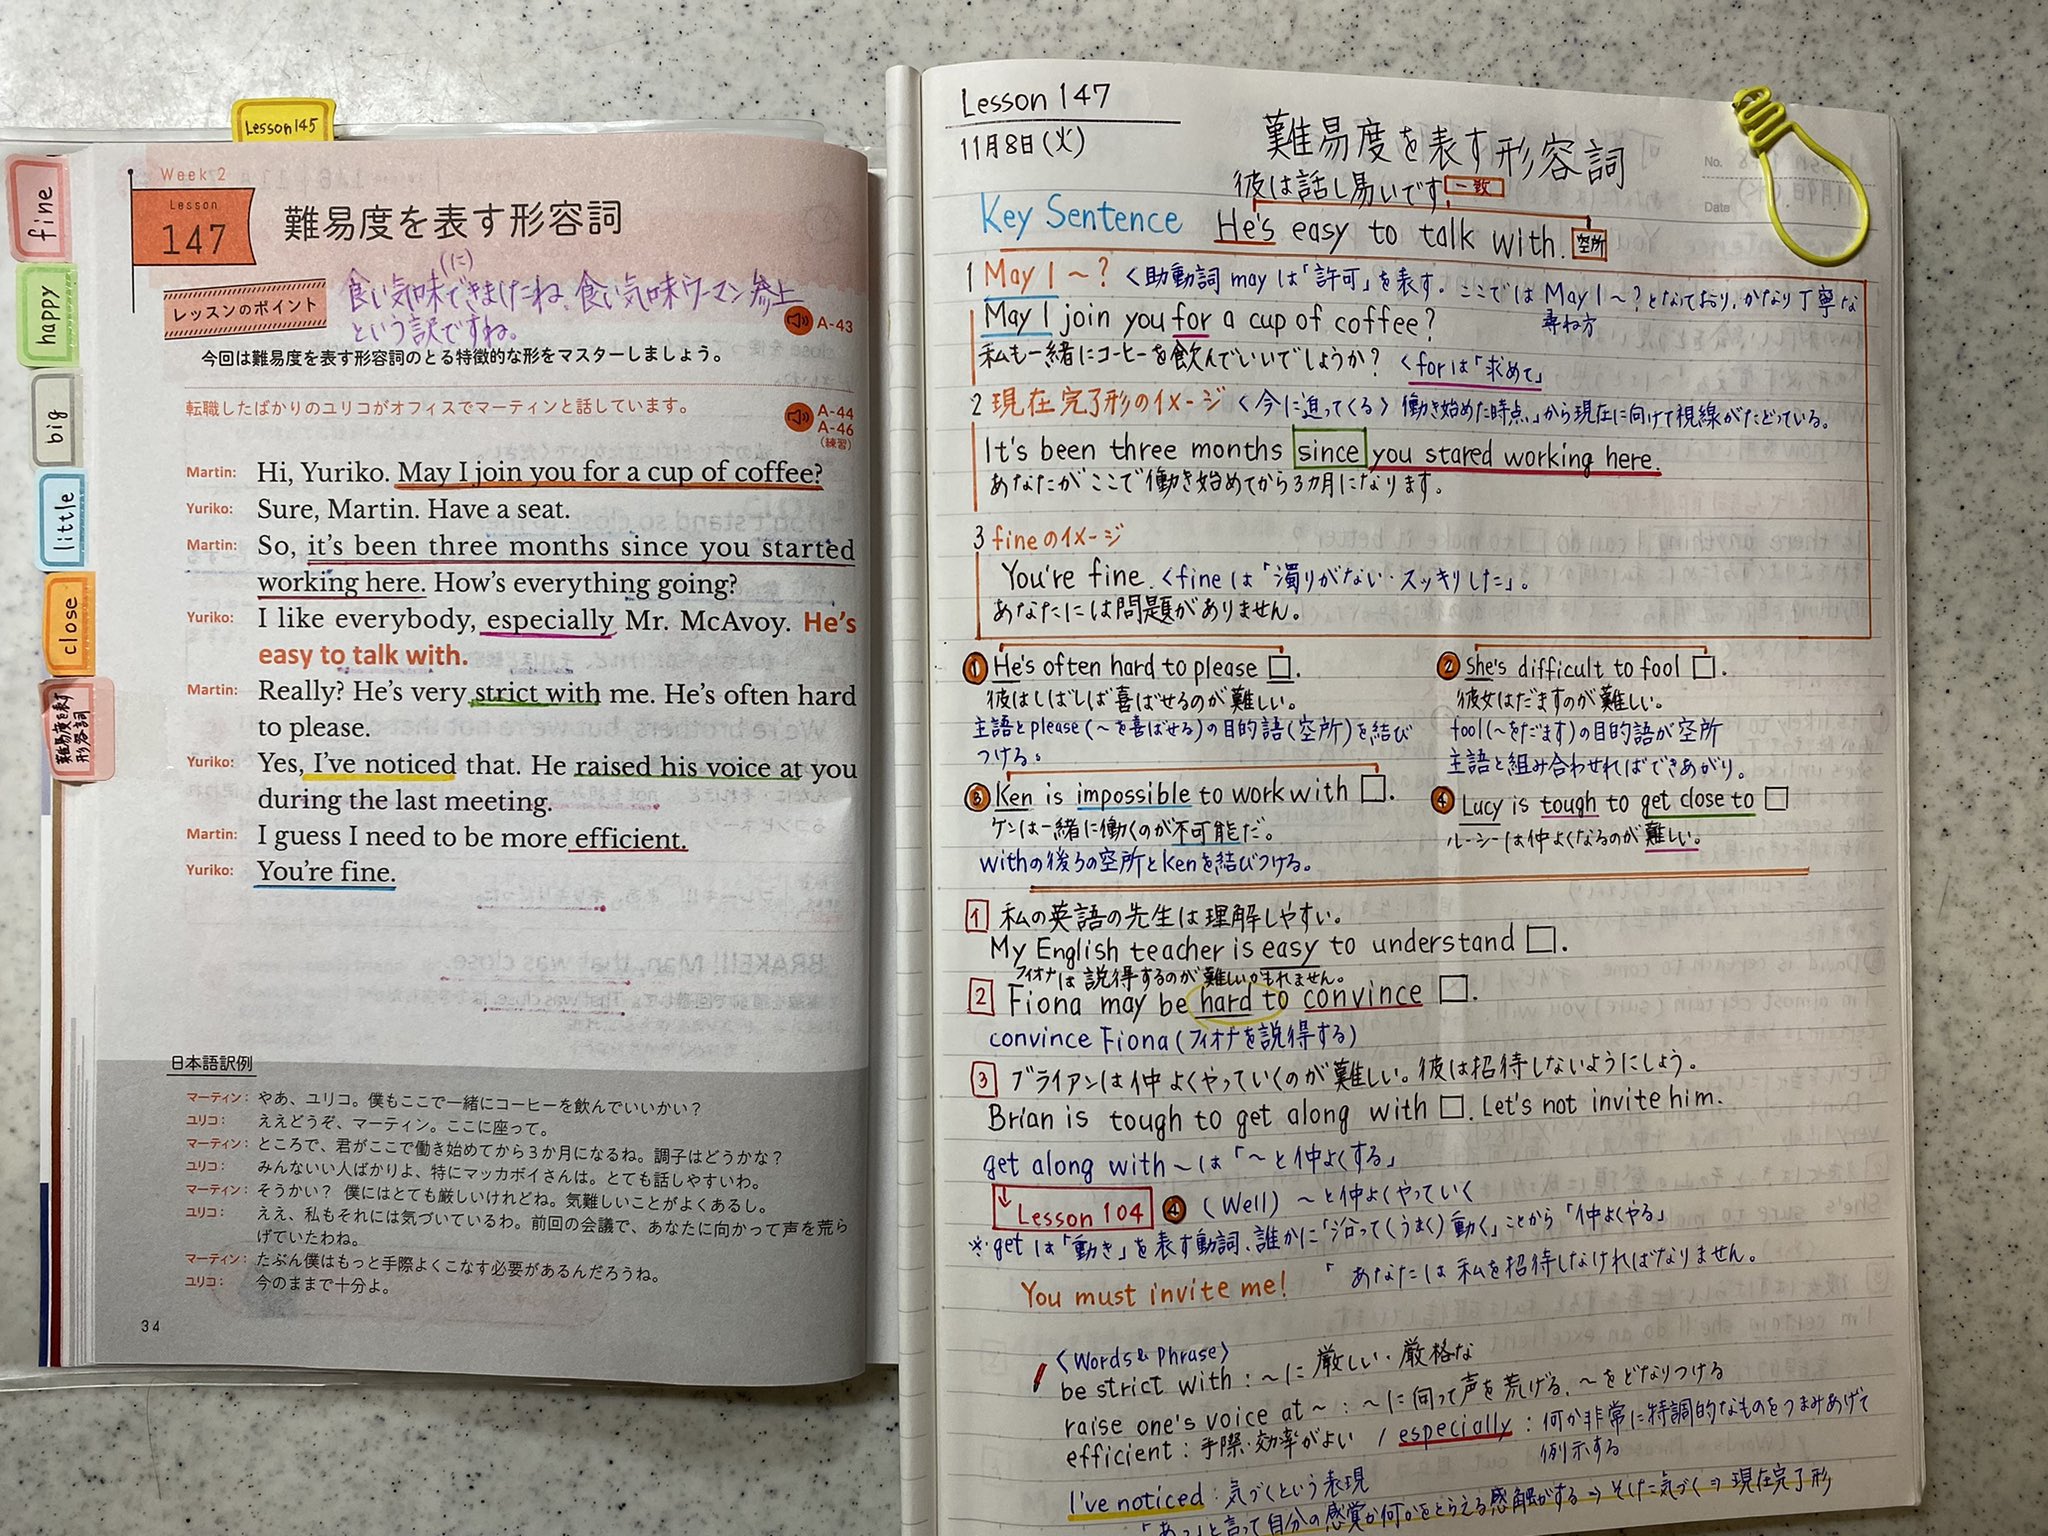 Lesson 145
fine
happy
big
little
close
難易度を表す
形容詞
Week 2
Lesson
147
難易度を表す形容詞
レッスンのポイント
(に)
食い気味できましたね、食い気味ウーマン参上
という訳ですね。
A-43
今回は難易度を表す形容詞のとる特徴的な形をマスターしましょう。
転職したばかりのユリコがオフィスでマーティンと話しています。
A-44
A-46
(練習)
Martin: Hi, Yuriko. May I join you for a cup of coffee?
Yuriko: Sure, Martin. Have a seat.
Martin: So, it's been three months since you started
working here. How's everything going?
Yuriko: I like everybody, especially Mr. McAvoy. He's
easy to talk with.
Martin: Really? He's very strict with me. He's often hard
to please.
Yuriko: Yes, I've noticed that. He raised his voice at you
during the last meeting.
Martin: I guess I need to be more efficient.
Yuriko: You're fine.
日本語訳例
マーティン: やあ、ユリコ。僕もここで一緒にコーヒーを飲んでいいかい？
ユリコ: ええどうぞ、マーティン。ここに座って。
マーティン: ところで、君がここで働き始めてから3か月になるね。調子はどうかな？
ユリコ: みんないい人ばかりよ、特にマッカボイさんは。とても話しやすいわ。
マーティン: そうかい？ 僕にはとても厳しいけれどね。気難しいことがよくあるし。
ユリコ: ええ、私もそれには気づいているわ。前回の会議で、あなたに向かって声を荒ら
げていたわね。
マーティン: たぶん僕はもっと手際よくこなす必要があるんだろうね。
ユリコ: 今のままで十分よ。
34
Lesson 147
11月8日(火)
難易度を表す形容詞
No.
Date
彼は話し易いです。 一致
Key Sentence He's easy to talk with. 空所
1 May I ～? <助動詞 may は「許可」を表す。ここでは May I ～? となっており、かなり丁寧な
尋ね方
May I join you for a cup of coffee?
私も一緒にコーヒーを飲んでいいでしょうか? <for は「求めて」
2 現在完了形のイメージ <今に迫ってくる> 働き始めた時点、」から現在に向けて視線がたどっている。
It's been three months since you stared working here.
あなたがここで働き始めてから3カ月になります。
3 fineのイメージ
You're fine. <fine は「濁りがない・スッキリした」。
あなたには問題がありません。
① He's often hard to please □.
彼はしばしば喜ばせるのが難しい。
主語とplease(～を喜ばせる)の目的語(空所)を結び
つける。
② She's difficult to fool □.
彼女はだますのが難しい。
fool(～をだます)の目的語が空所
主語と組み合わせればできあがり。
③ Ken is impossible to work with □.
ケンは一緒に働くのが不可能だ。
withの後ろの空所とKenを結びつける。
④ Lucy is tough to get close to □
ルーシーは仲よくなるのが難しい。
1 私の英語の先生は理解しやすい。
My English teacher is easy to understand □.
フィオナは説得するのが難しいかもれません。
2 Fiona may be hard to convince □.
convince Fiona(フィオナを説得する)
3 ブライアンは仲よくやっていくのが難しい。彼は招待しないようにしよう。
Brian is tough to get along with □. Let's not invite him.
get along with ～は「～と仲よくする」
↓ Lesson 104 ④ (Well) ～と仲よくやっていく
※getは「動き」を表す動詞、誰かに「沿って(うまく)動く」ことから「仲よくやる」
You must invite me! 「あなたは私を招待しなければなりません。
<Words & Phrase>
be strict with : ～に厳しい・厳格な
raise one's voice at ～ : ～に向って声を荒げる、～をどなりつける
efficient : 手際・効率がよい / especially : 何か非常に特調的なものをつまみあげて
例示する
I've noticed : 気づくという表現
「あっ」と言って自分の感覚が何かをとらえる感触がする⇒そした気づく⇒現在完了形